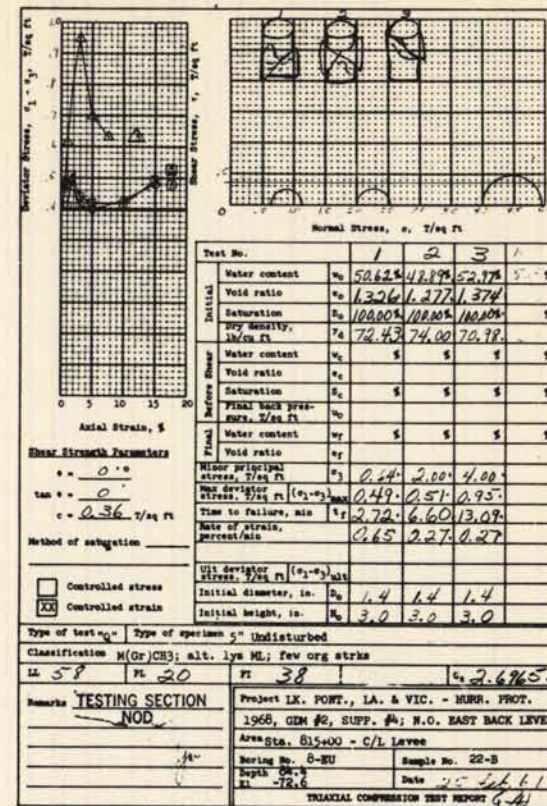 Deviator Stress, σ1 - σ3, T/sq ft
Shear Stress, τ, T/sq ft
1 2 3
.4
0 5 10 15 20
Axial Strain, %
Normal Stress, σ, T/sq ft
Shear Strength Parameters
φ = 0 °
tan φ = 0
c = 0.36 T/sq ft
Method of saturation
Controlled stress
XX Controlled strain
Test No. 1 2 3
Initial
Water content w0 50.62% 48.89% 52.97%
Void ratio e0 1.326 1.277 1.374
Saturation S0 100.00% 100.00% 100.00%
Dry density, lb/cu ft γd 72.43 74.00 70.98
Before Shear
Water content wc % % %
Void ratio ec
Saturation Sc % % %
Final back pressure, T/sq ft u0
Final
Water content wf % % %
Void ratio ef
Minor principal stress, T/sq ft σ3 2.00 4.00
Max deviator stress, T/sq ft (σ1-σ3)max 0.49 0.51 0.95
Time to failure, min tf 2.72 6.60 13.09
Rate of strain, percent/min 0.65 0.27 0.27
Ult deviator stress, T/sq ft (σ1-σ3)ult
Initial diameter, in. D0 1.4 1.4 1.4
Initial height, in. H0 3.0 3.0 3.0
Type of test "Q" Type of specimen 5" Undisturbed
Classification M(Gr)CH3; alt. lys ML; few org strks
LL 58 PL 20 PI 38 Gs 2.6965
Remarks TESTING SECTION
NOD
Project LK. PONT., LA. & VIC. - HURR. PROT.
1968, GDM #2, SUPP. #4; N.O. EAST BACK LEVE
Area Sta. 815+00 - C/L Levee
Boring No. 8-EU Sample No. 22-B
Depth
El -72.6 Date
TRIAXIAL COMPRESSION TEST REPORT